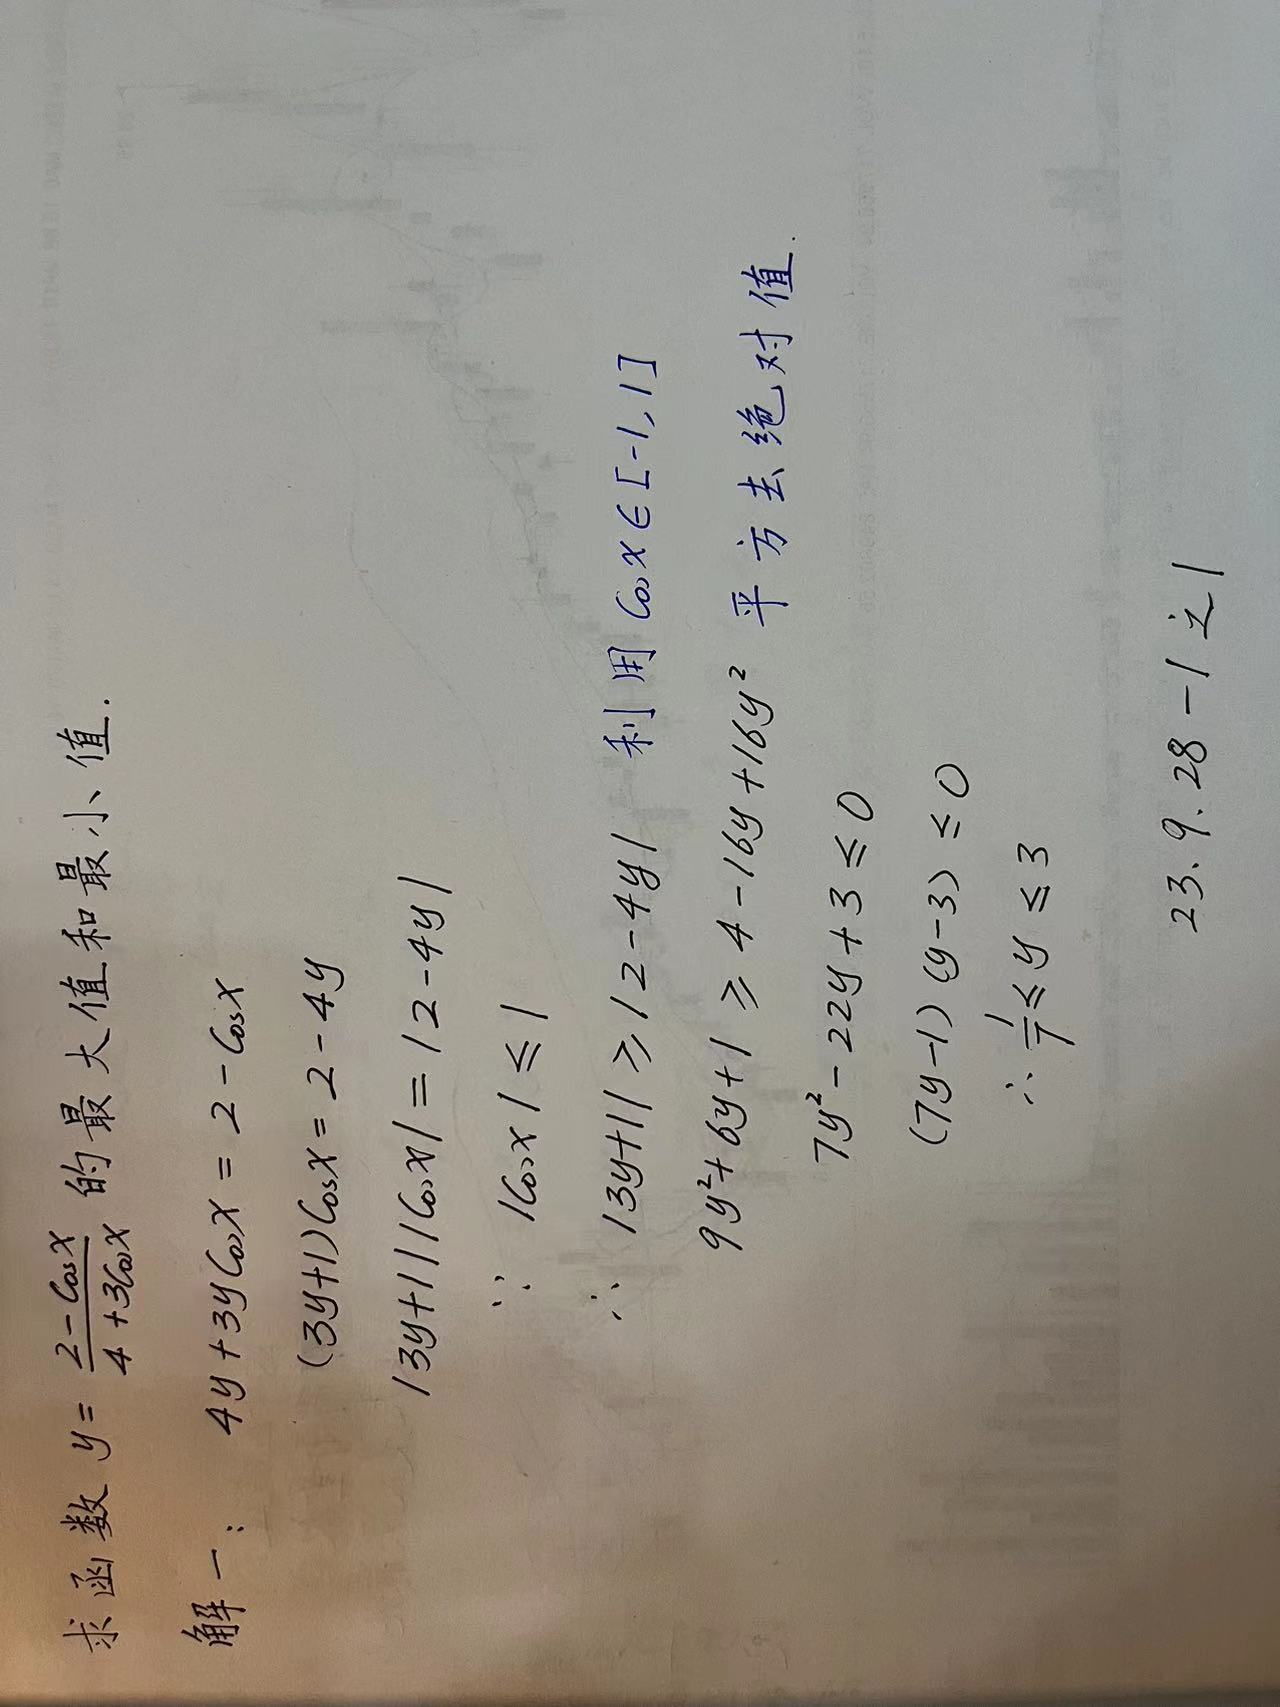 求函数 y = (2-Cosx)/(4+3Cosx) 的最大值和最小值.
解一: 4y+3yCosx = 2-Cosx
(3y+1)Cosx = 2-4y
|3y+1||Cosx| = |2-4y|
∵ |Cosx| ≤ 1
∴ |3y+1| ≥ |2-4y| 利用 Cosx∈[-1,1]
9y²+6y+1 ≥ 4-16y+16y² 平方去绝对值.
7y²-22y+3 ≤ 0
(7y-1)(y-3) ≤ 0
∴ 1/7 ≤ y ≤ 3
23.9.28-1之1